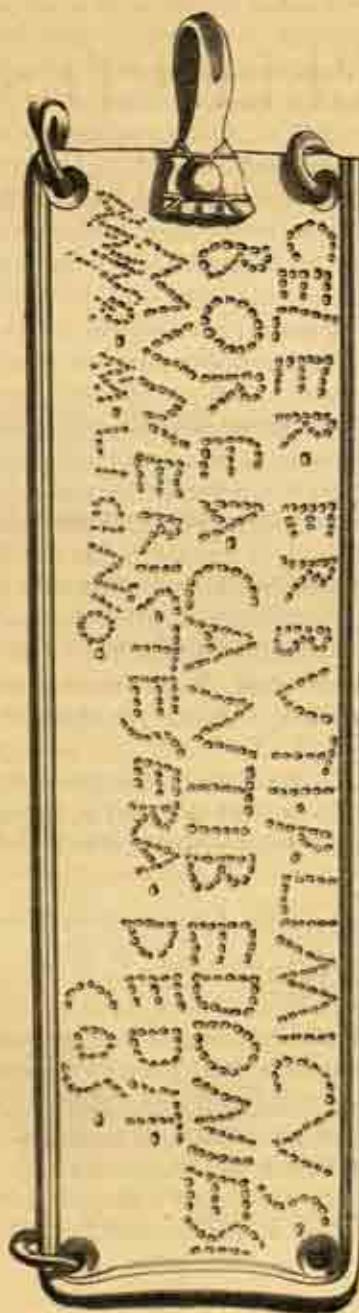 CELER. ERBVTI.F.LIMICVS
BOREA.CANTIBEDONIESI
MVNERIS.TESERA. DEDIT.
ANNO.M.LICINIO. COS.